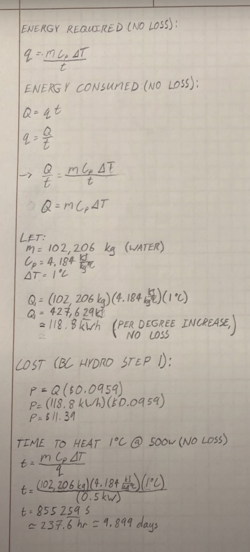 ENERGY REQUIRED (NO LOSS):
q = m Cp ΔT / t
ENERGY CONSUMED (NO LOSS):
Q = q t
q = Q / t
→ Q / t = m Cp ΔT / t
Q = m Cp ΔT
LET:
m = 102,206 kg (WATER)
Cp = 4.184 kJ/kg°C
ΔT = 1°C
Q = (102,206 kg)(4.184 kJ/kg°C)(1°C)
Q = 427,629 kJ
≈ 118.8 kWh (PER DEGREE INCREASE,
NO LOSS)
COST (BC HYDRO STEP 1):
P = Q ($0.0959)
P = (118.8 kWh)($0.0959)
P = $11.39
TIME TO HEAT 1°C @ 500W (NO LOSS)
t = m Cp ΔT / q
t = (102,206 kg)(4.184 kJ/kg°C)(1°C) / (0.5kW)
t = 855259 s
≈ 237.6 hr ≈ 9.899 days